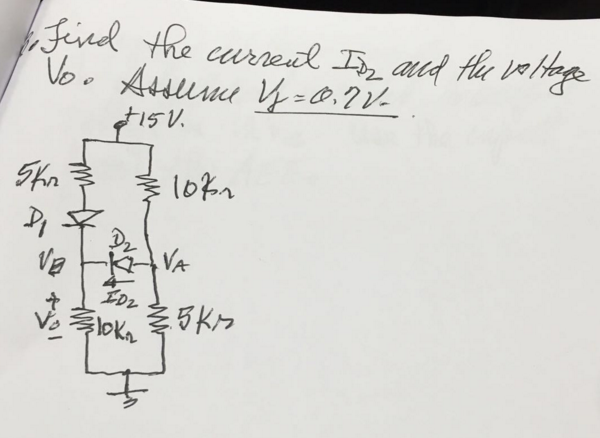 Find the current I_D2 and the voltage
Vo. Assume Vf = 0.7V.
+15V.
5KΩ
10KΩ
D1
D2
VB
VA
ID2
+
Vo
-
10KΩ
5KΩ